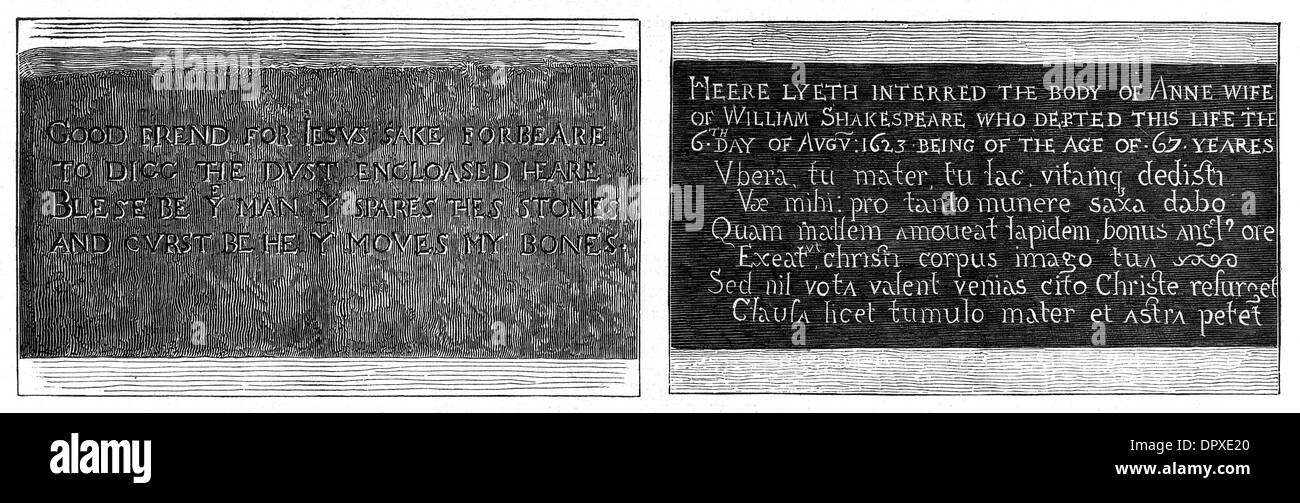 GOOD FREND FOR IESVS SAKE FORBEARE
TO DIGG THE DVST ENCLOASED HEARE
BLESE BE Yᴱ MAN Yᵀ SPARES THES STONES
AND CVRST BE HE Yᵀ MOVES MY BONES.
HEERE LYETH INTERRED THE BODY OF ANNE WIFE
OF WILLIAM SHAKESPEARE WHO DEPTED THIS LIFE THE
6·ᵀᴴ DAY OF AVGV̄: 1623 BEING OF THE AGE OF·67·YEARES
Vbera, tu mater, tu lac, vitamq dedisti
Væ mihi: pro tanto munere saxa dabo
Quam mallem amoueat lapidem, bonus Angl⁹ ore
Exeatᵛᵗ, christi corpus imago tua
Sed nil vota valent venias cito Christe resurget
Clausa licet tumulo mater et astra petet
alamy stock photo
DPXE20
www.alamy.com